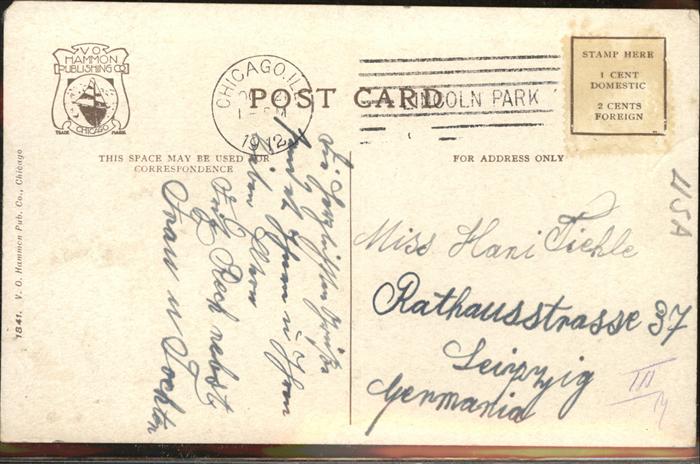 V O
HAMMON
PUBLISHING CO
TRADE MARK
CHICAGO
CHICAGO, ILL
1912
LINCOLN PARK
POST CARD
STAMP HERE
1 CENT
DOMESTIC
2 CENTS
FOREIGN
THIS SPACE MAY BE USED FOR
CORRESPONDENCE
FOR ADDRESS ONLY
1841. V. O. Hammon Pub. Co., Chicago
Die herzlichsten Grüße
sendet Ihnen u Ihren
lieben Eltern
nebst
Frau u Tochter
USA
Miss Hani
Rathausstrasse 37
Leipzig
Germania
III